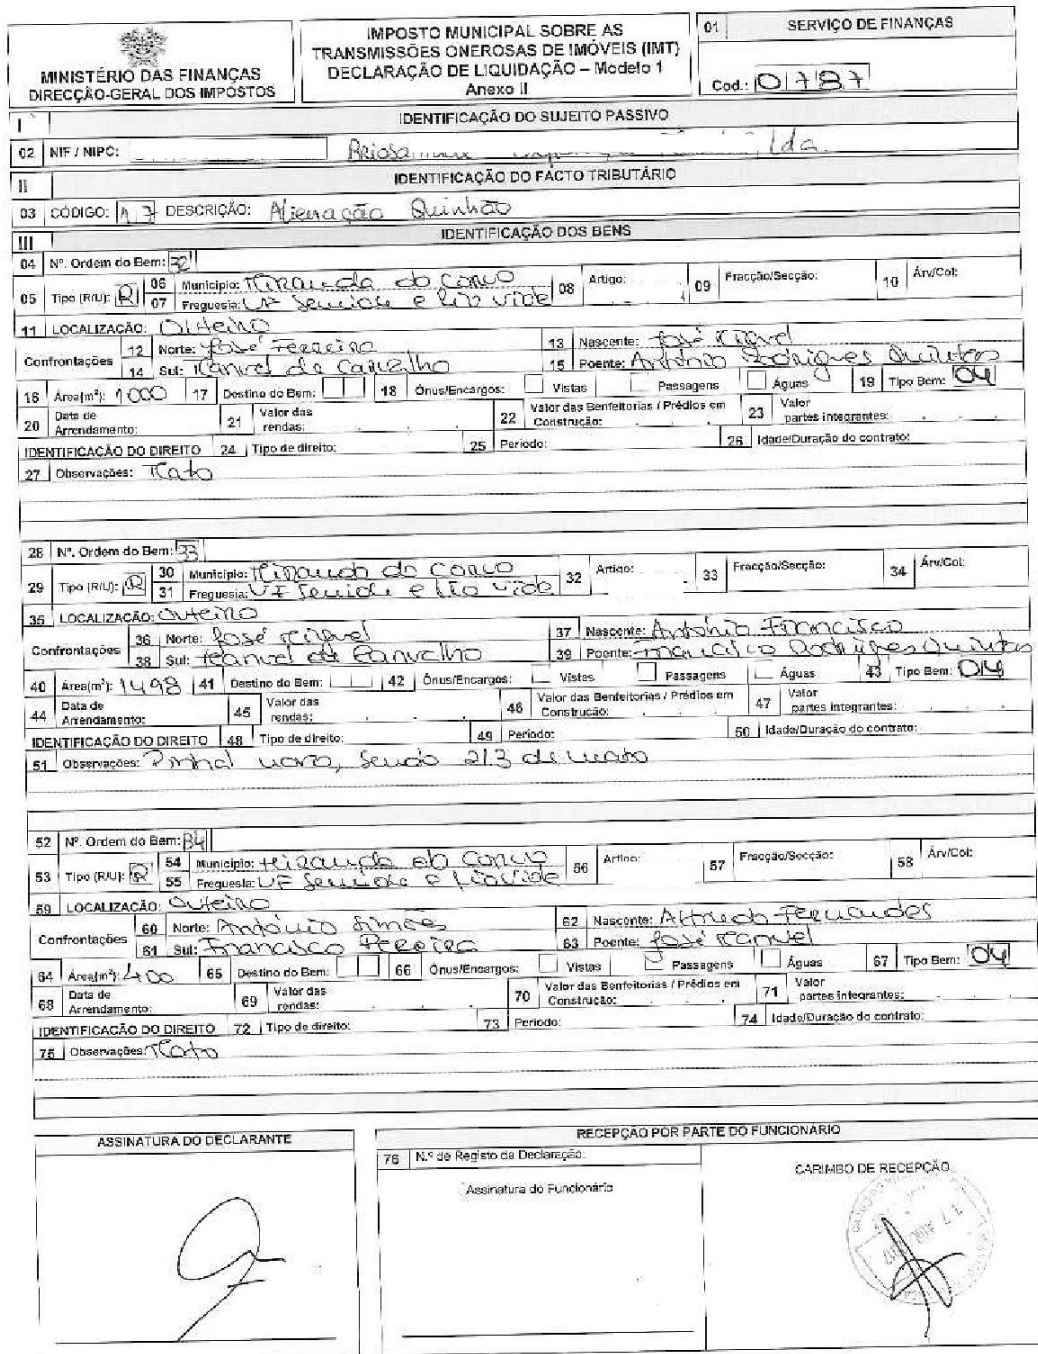 MINISTÉRIO DAS FINANÇAS
DIRECÇÃO-GERAL DOS IMPOSTOS
IMPOSTO MUNICIPAL SOBRE AS
TRANSMISSÕES ONEROSAS DE IMÓVEIS (IMT)
DECLARAÇÃO DE LIQUIDAÇÃO – Modelo 1
Anexo II
01 SERVIÇO DE FINANÇAS
Cod.: 0787
I IDENTIFICAÇÃO DO SUJEITO PASSIVO
02 NIF / NIPC: Lda
II IDENTIFICAÇÃO DO FACTO TRIBUTÁRIO
03 CÓDIGO: A 7 DESCRIÇÃO: Alienação Quinhão
III IDENTIFICAÇÃO DOS BENS
04 Nº. Ordem do Bem: 32
05 Tipo (R/U): R 06 Município: Miranda do Corvo 08 Artigo: 09 Fracção/Secção: 10 Árv/Col:
07 Freguesia: UF Semide e Rio Vide
11 LOCALIZAÇÃO: Outeiro
Confrontações 12 Norte: José Ferreira 13 Nascente: José
14 Sul: Manuel de Carvalho 15 Poente: António Rodrigues Quintas
16 Área(m²): 1000 17 Destino do Bem: 18 Ónus/Encargos: Vistas Passagens Águas 19 Tipo Bem: 04
20 Data de Arrendamento: 21 Valor das rendas: 22 Valor das Benfeitorias / Prédios em Construção: 23 Valor partes integrantes:
IDENTIFICAÇÃO DO DIREITO 24 Tipo de direito: 25 Período: 26 Idade/Duração do contrato:
27 Observações: Mato
28 Nº. Ordem do Bem: 33
29 Tipo (R/U): R 30 Município: Miranda do Corvo 32 Artigo: 33 Fracção/Secção: 34 Árv/Col:
31 Freguesia: UF Semide e Rio Vide
35 LOCALIZAÇÃO: Outeiro
Confrontações 36 Norte: José 37 Nascente: António Francisco
38 Sul: Manuel de Carvalho 39 Poente: Rodrigues Quintas
40 Área(m²): 1498 41 Destino do Bem: 42 Ónus/Encargos: Vistas Passagens Águas 43 Tipo Bem: 04
44 Data de Arrendamento: 45 Valor das rendas: 46 Valor das Benfeitorias / Prédios em Construção: 47 Valor partes integrantes:
IDENTIFICAÇÃO DO DIREITO 48 Tipo de direito: 49 Período: 50 Idade/Duração do contrato:
51 Observações: Pinhal sendo 2/3 de mato
52 Nº. Ordem do Bem: 34
53 Tipo (R/U): R 54 Município: Miranda do Corvo 56 Artigo: 57 Fracção/Secção: 58 Árv/Col:
55 Freguesia: UF Semide e Rio Vide
59 LOCALIZAÇÃO: Outeiro
Confrontações 60 Norte: António Simões 62 Nascente: Alfredo Fernandes
61 Sul: Francisco Pereira 63 Poente: José Manuel
64 Área(m²): 400 65 Destino do Bem: 66 Ónus/Encargos: Vistas Passagens Águas 67 Tipo Bem: 04
68 Data de Arrendamento: 69 Valor das rendas: 70 Valor das Benfeitorias / Prédios em Construção: 71 Valor partes integrantes:
IDENTIFICAÇÃO DO DIREITO 72 Tipo de direito: 73 Período: 74 Idade/Duração do contrato:
75 Observações: Mato
ASSINATURA DO DECLARANTE
RECEPÇÃO POR PARTE DO FUNCIONÁRIO
76 N.º de Registo da Declaração:
Assinatura do Funcionário
CARIMBO DE RECEPÇÃO